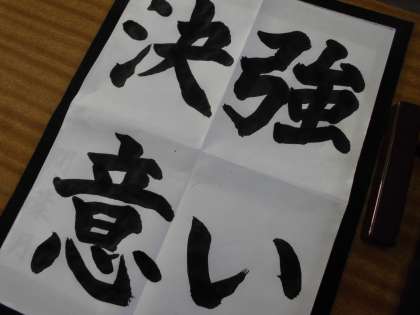 強い
決意